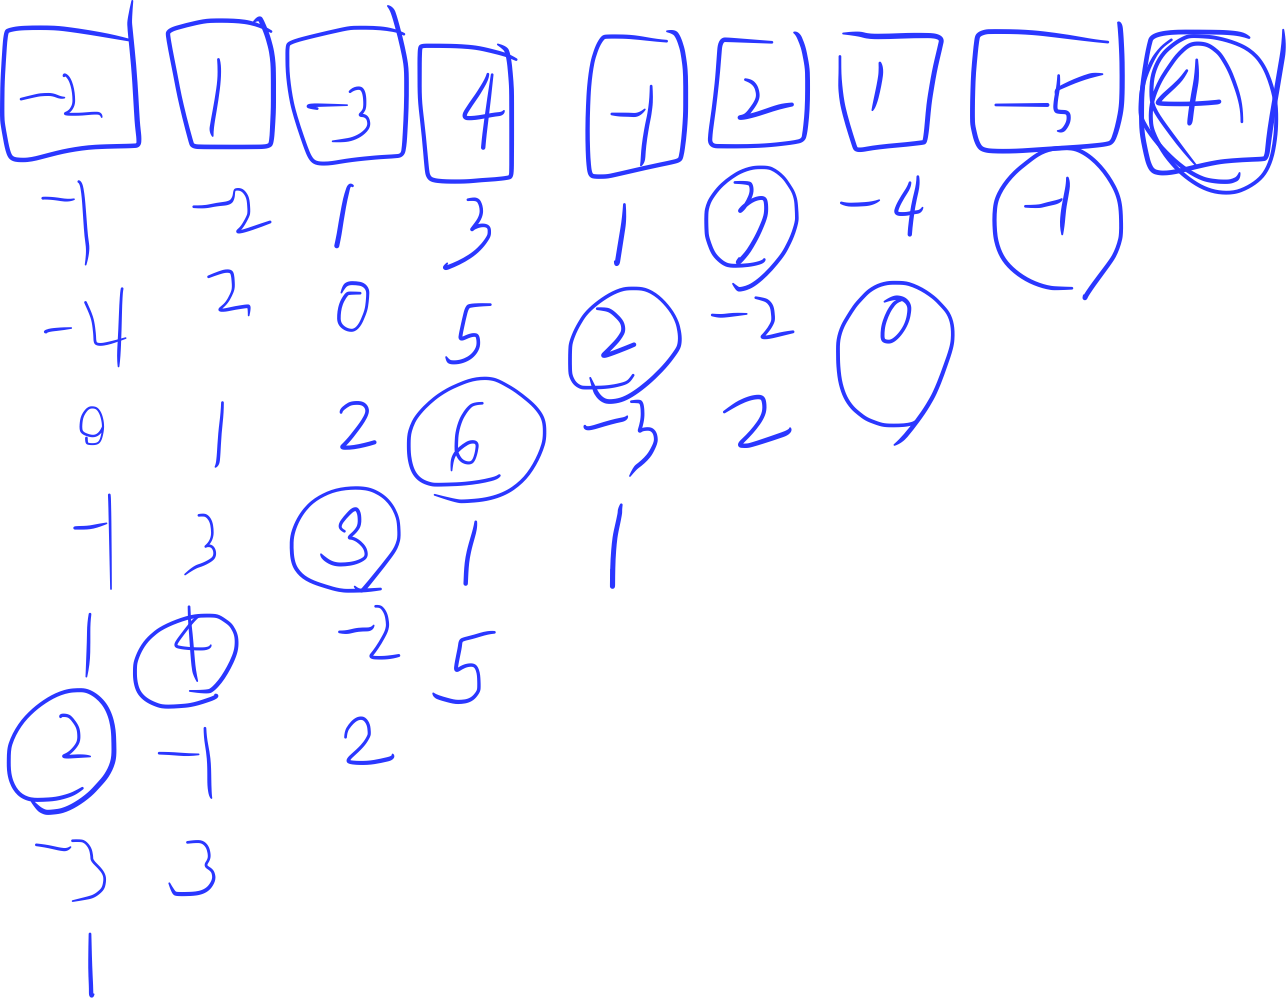 -2 1 -3 4 -1 2 1 -5 4
-1 -2 1 3 1 3 -4 -1
-4 2 0 5 2 -2 0
0 1 2 6 -3 2
-1 3 3 1 1
1 4 -2 5
2 -1 2
-3 3
1